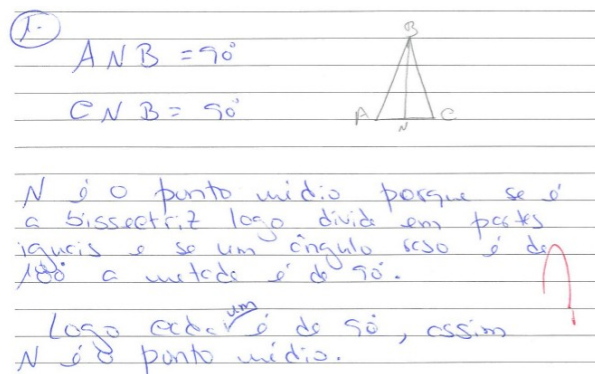 1-
B
ANB = 90°
CNB = 90°
A N C
N é o ponto médio porque se é
a bissectriz logo divide em partes
iguais e se um ângulo raso é de
180° a metade é de 90°.
Logo cada um é de 90°, assim
N é o ponto médio.